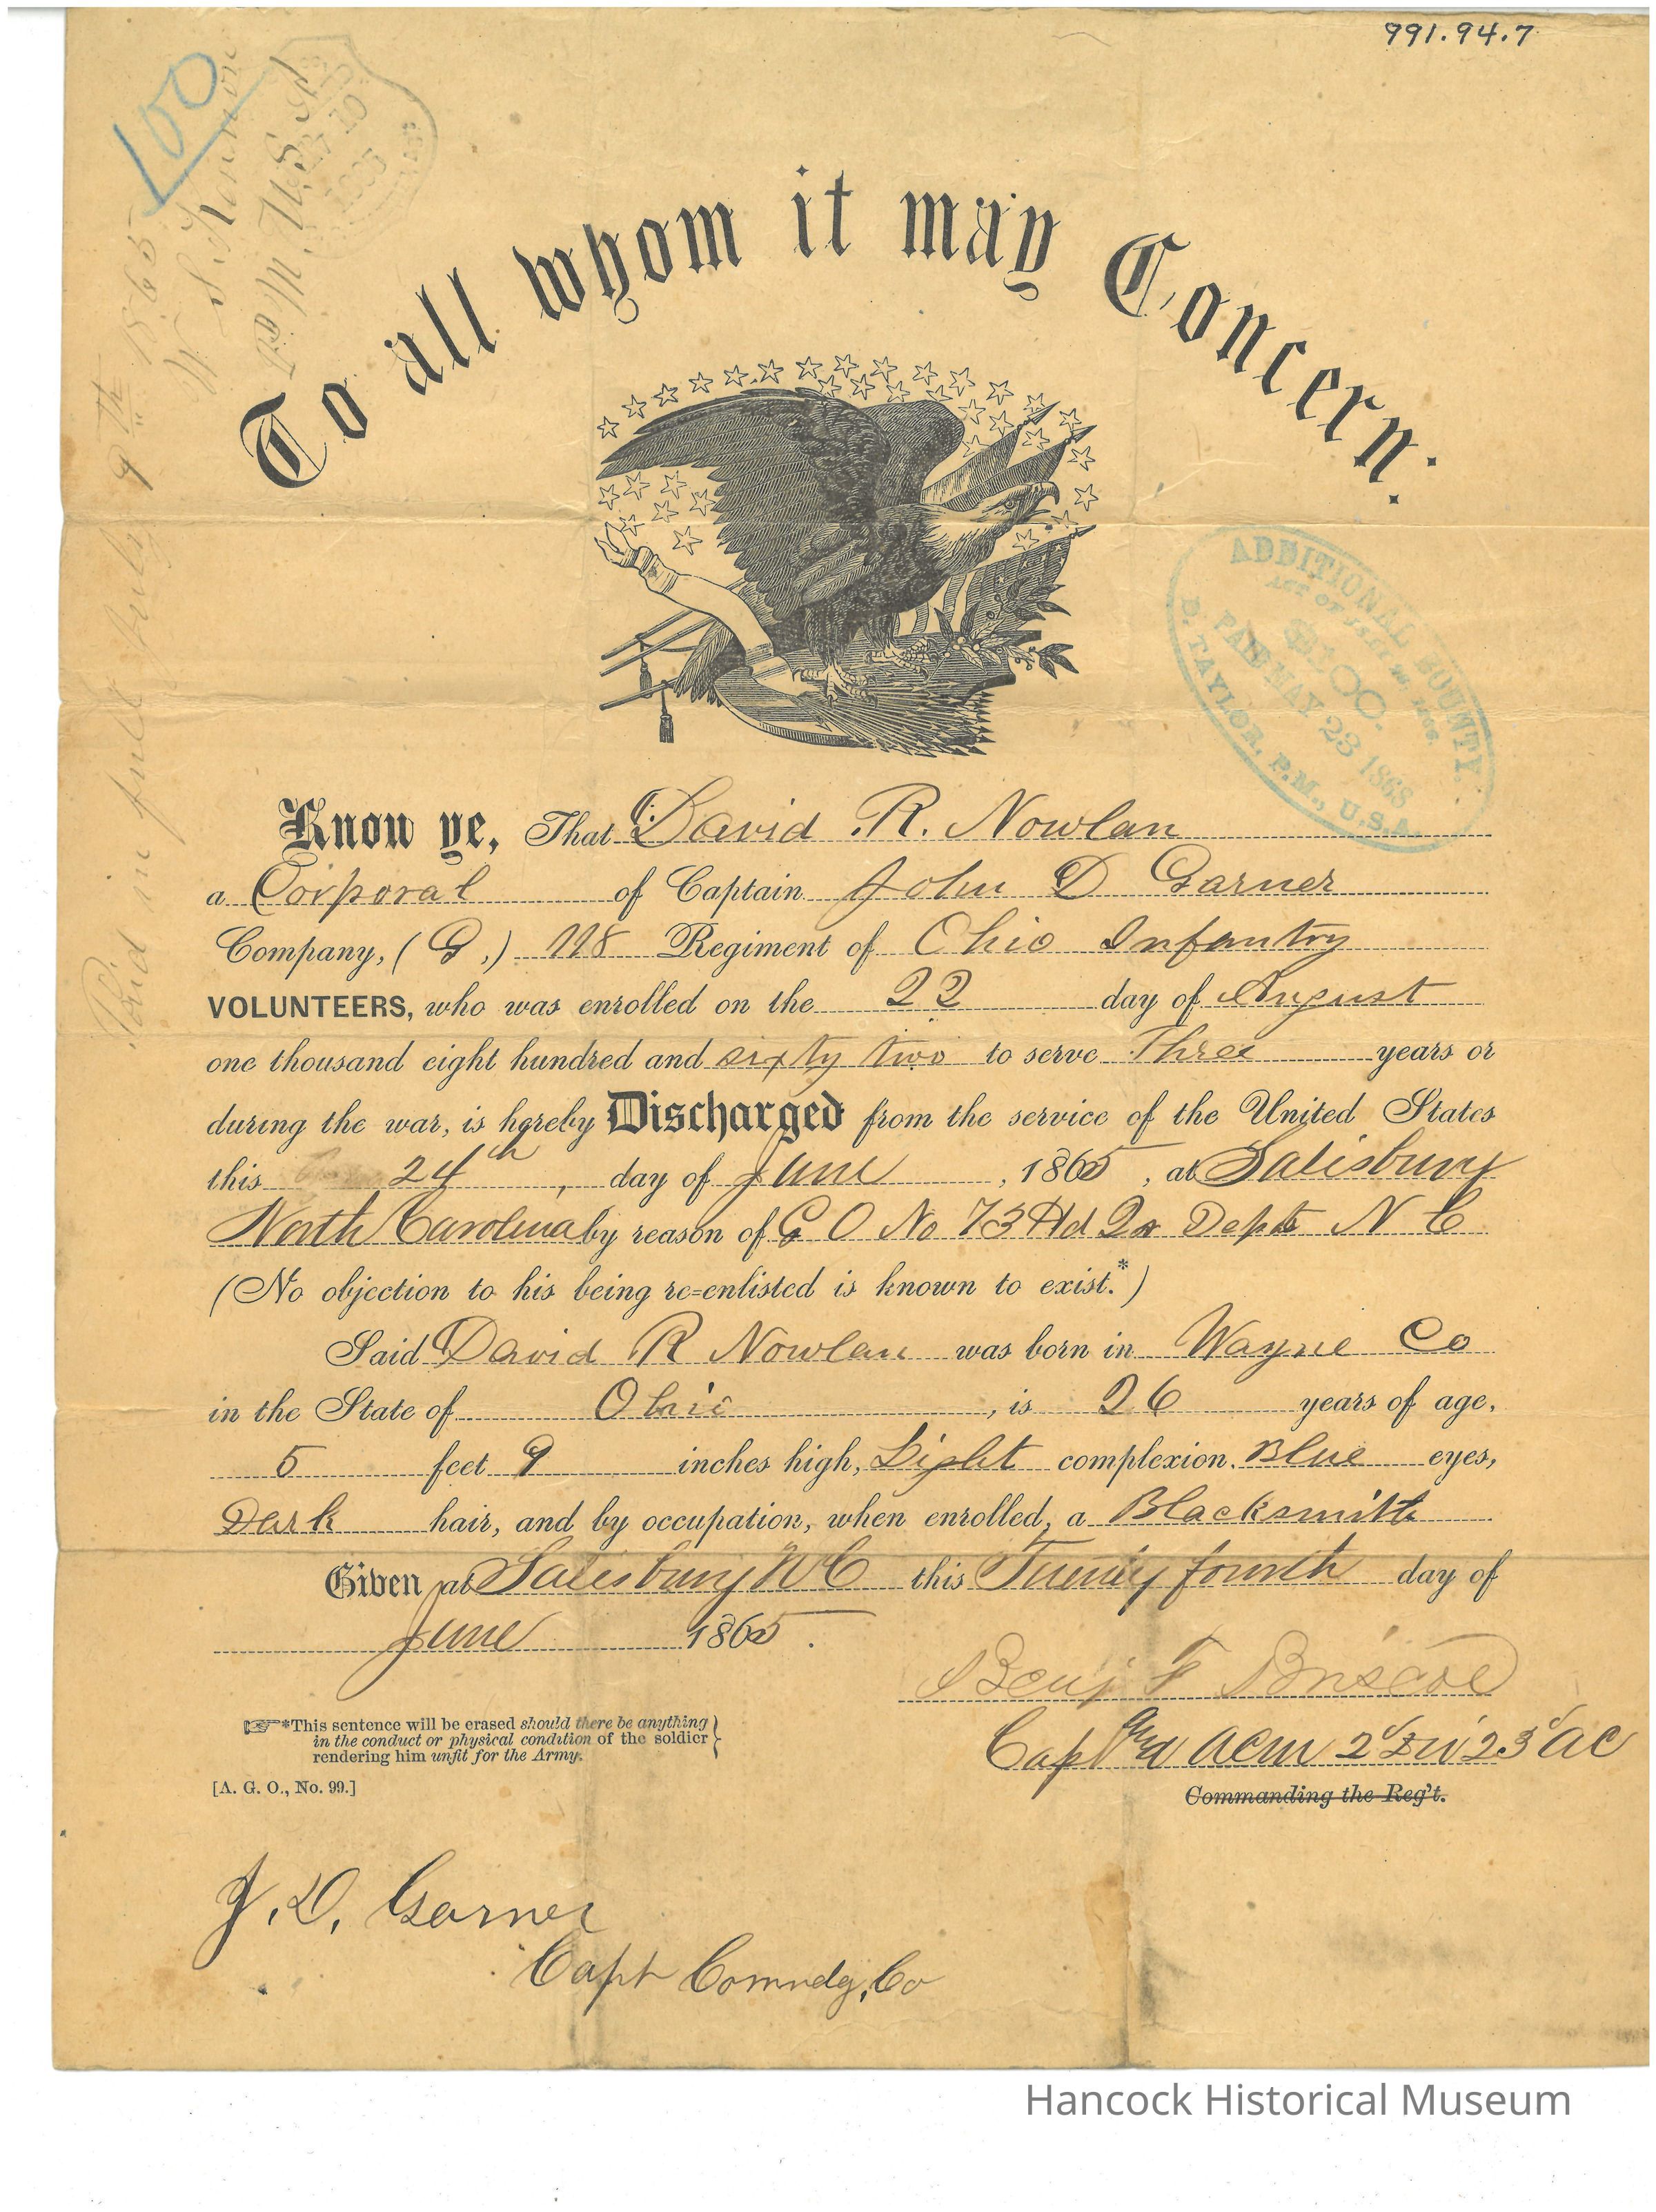 991.94.7
100
Paid in full July 9th 1865
W. S.
P M, U.S.A
To all whom it may Concern:
ADDITIONAL BOUNTY.
ACT OF JULY 28, 1866.
$100.
PAID MAY 23 1868
D. TAYLOR, P.M., U.S.A.
Know ye, That David R. Nowlan
a Corporal of Captain John D Garner
Company, (G,) 118 Regiment of Ohio Infantry
VOLUNTEERS, who was enrolled on the 22 day of August
one thousand eight hundred and sixty two to serve Three years or
during the war, is hereby Discharged from the service of the United States
this 24th, day of June, 1865, at Salisbury
North Carolina by reason of G O No 73 Hd Qr Depts N C
(No objection to his being re=enlisted is known to exist.*)
Said David R Nowlan was born in Wayne Co
in the State of Ohio, is 26 years of age,
5 feet 9 inches high, Light complexion, Blue eyes,
Dark hair, and by occupation, when enrolled, a Blacksmith
Given at Salisbury NC this Twenty fourth day of
June 1865.
Benj F Briscoe
Capt & ACM 2d Div 23d AC
Commanding the Reg't.
*This sentence will be erased should there be anything
in the conduct or physical condition of the soldier
rendering him unfit for the Army.
[A. G. O., No. 99.]
J. D. Garner
Capt Comndg, Co
Hancock Historical Museum